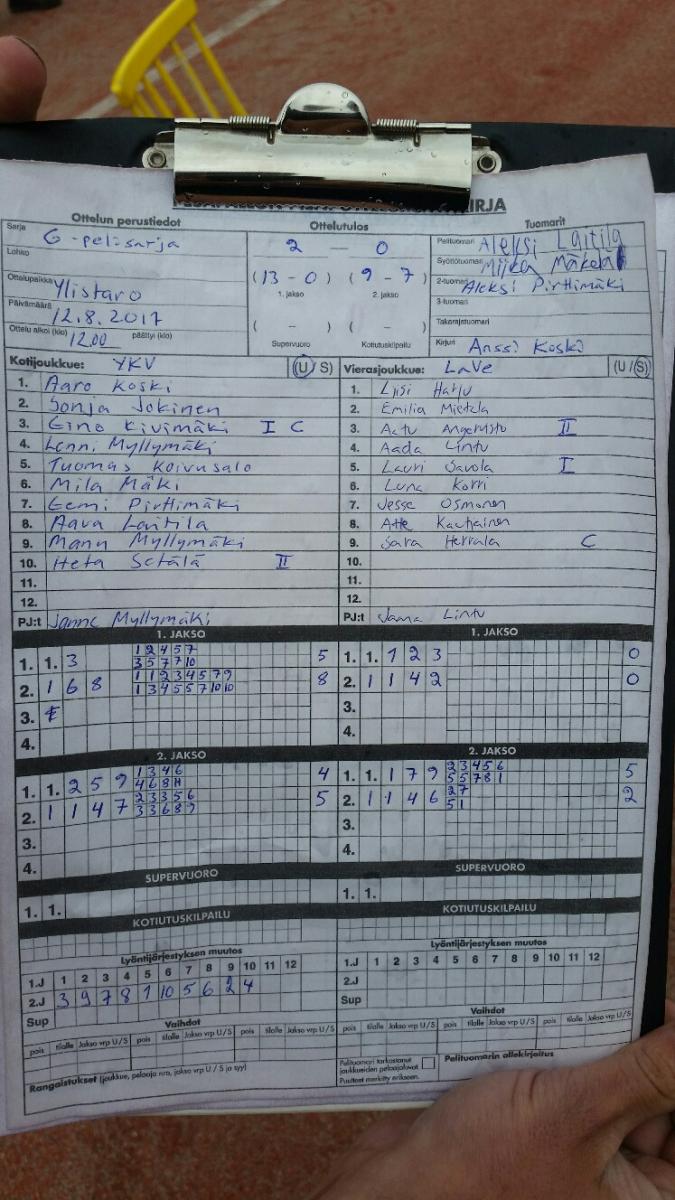 KIRJA
Ottelun perustiedot
Ottelutulos
Tuomarit
Sarja G-pelisarja
Lohko
Ottelupaikka Ylistaro
Päivämäärä 12.8.2017
Ottelu alkoi (klo) 12.00 päättyi (klo)
2 — 0
(13 - 0) (9 - 7)
1. jakso 2. jakso
( - ) ( - )
Supervuoro Kotiutuskilpailu
Pelituomari Aleksi Laitila
Syöttötuomari Mijka Mäkelä
2-tuomari Aleksi Pirttimäki
3-tuomari
Takarajatuomari
Kirjuri Anssi Koski
Kotijoukkue: YKV (U/S)
1. Aaro Koski
2. Sonja Jokinen
3. Eino Kivimäki I C
4. Lenni Myllymäki
5. Tuomas Koivusalo
6. Mila Mäki
7. Eemi Pirttimäki
8. Aava Laitila
9. Manu Myllymäki
10. Heta Setälä II
11.
12.
PJ:t Janne Myllymäki
Vierasjoukkue: LaVe (U/S)
1. Harju
2. Emilia
3. Aatu II
4. Aada Lintu
5. Lauri Savola I
6. Luna Korri
7. Jesse Osmonen
8. Atte
9. Sara Herrala C
10.
11.
12.
PJ:t Lintu
1. JAKSO
1. 1. 3 1 2 4 5 7 5
3 5 7 7 10
2. 1 6 8 1 1 2 3 4 5 7 9 8
1 3 4 5 5 7 10 10
3.
4.
1. JAKSO
1. 1. 1 2 3 0
2. 1 1 4 2 0
3.
4.
2. JAKSO
1. 1. 2 5 9 1 3 4 6 4
4 6 8
2. 1 1 4 7 2 3 3 5 6 5
3 3 6 8 9
3.
4.
2. JAKSO
1. 1. 1 7 9 2 3 4 5 6 5
5 5 7 8 1
2. 1 1 4 6 2 7 2
5 1
3.
4.
SUPERVUORO
1. 1.
KOTIUTUSKILPAILU
SUPERVUORO
1. 1.
KOTIUTUSKILPAILU
Lyöntijärjestyksen muutos
1.J 1 2 3 4 5 6 7 8 9 10 11 12
2.J 3 9 7 8 1 10 5 6 2 4
Sup
Lyöntijärjestyksen muutos
1.J 1 2 3 4 5 6 7 8 9 10 11 12
2.J
Sup
Vaihdot
pois tilalle Jakso vrp U/S pois tilalle Jakso vrp U/S pois tilalle Jakso vrp U/S
Vaihdot
pois tilalle Jakso vrp U/S pois tilalle Jakso vrp U/S pois tilalle Jakso vrp U/S
Rangaistukset (joukkue, pelaaja nro, jakso vrp U / S ja syy)
Pelituomari tarkastanut
joukkueiden pelaajaluvat
Puutteet merkitty erikseen.
Pelituomarin allekirjoitus